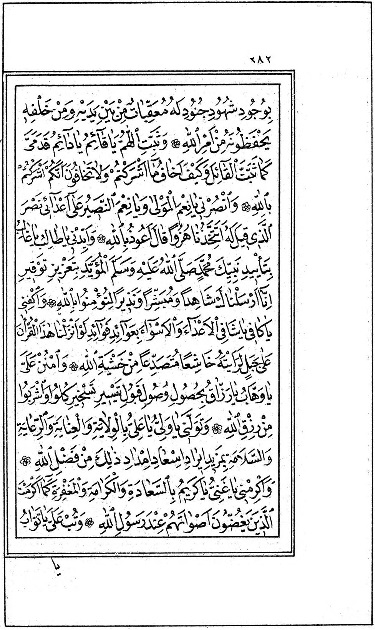 ٢٨٢
بِوُجُودِ شُهُودِ جُنُودِ لَهُ مُعَقِّبَاتٌ مِنْ بَيْنِ يَدَيْهِ وَمِنْ خَلْفِهِ
يَحْفَظُونَهُ مِنْ أَمْرِ اللهِ ۞ وَثَبِّتِ اللّٰهُمَّ يَا قَائِمُ يَا دَائِمُ قَدَمَىَّ
كَمَا ثَبَّتَّ الْقَائِلَ وَكَيْفَ أَخَافُ مَا أَشْرَكْتُمْ وَلَا تَخَافُونَ أَنَّكُمْ أَشْرَكْتُمْ
بِاللهِ ۞ وَانْصُرْنِى يَا نِعْمَ الْمَوْلَى وَيَا نِعْمَ النَّصِيرُ عَلَى أَعْدَائِى نَصْرَ
الَّذِى قِيلَ لَهُ أَتَتَّخِذُنَا هُزُوًا قَالَ أَعُوذُ بِاللهِ ۞ وَأَيِّدْنِى يَا طَالِبُ يَا غَالِبُ
بِتَأْيِيدِ نَبِيِّكَ مُحَمَّدٍ صَلَّى اللهُ عَلَيْهِ وَسَلَّمَ الْمُؤَيَّدِ بِتَعْزِيزِ تَوْقِيرِ
إِنَّا أَرْسَلْنَاكَ شَاهِدًا وَمُبَشِّرًا وَنَذِيرًا لِتُؤْمِنُوا بِاللهِ ۞ وَاكْفِنِى
يَا كَافِى يَا شَافِى الْأَعْدَاءَ وَالْأَسْوَاءَ بِعَوَائِدِ فَوَائِدِ لَوْ أَنْزَلْنَا هٰذَا الْقُرْآنَ
عَلَى جَبَلٍ لَرَأَيْتَهُ خَاشِعًا مُتَصَدِّعًا مِنْ خَشْيَةِ اللهِ ۞ وَامْنُنْ عَلَىَّ
يَا وَهَّابُ يَا رَزَّاقُ بِحُصُولِ وُصُولِ قَبُولِ تَيْسِيرِ تَسْخِيرِ كُلُوا وَاشْرَبُوا
مِنْ رِزْقِ اللهِ ۞ وَتَوَلَّنِى يَا وَلِىُّ يَا عَلِىُّ بِالْوِلَايَةِ وَالْعِنَايَةِ وَالرِّعَايَةِ
وَالسَّلَامَةِ بِمَزِيدِ إِيرَادِ إِسْعَادِ إِمْدَادِ ذٰلِكَ مِنْ فَضْلِ اللهِ ۞
وَأَكْرِمْنِى يَا غَنِىُّ يَا كَرِيمُ بِالسَّعَادَةِ وَالْكَرَامَةِ وَالْمَغْفِرَةِ كَمَا أَكْرَمْتَ
الَّذِينَ يَغُضُّونَ أَصْوَاتَهُمْ عِنْدَ رَسُولِ اللهِ ۞ وَتُبْ عَلَىَّ يَا تَوَّابُ
يا